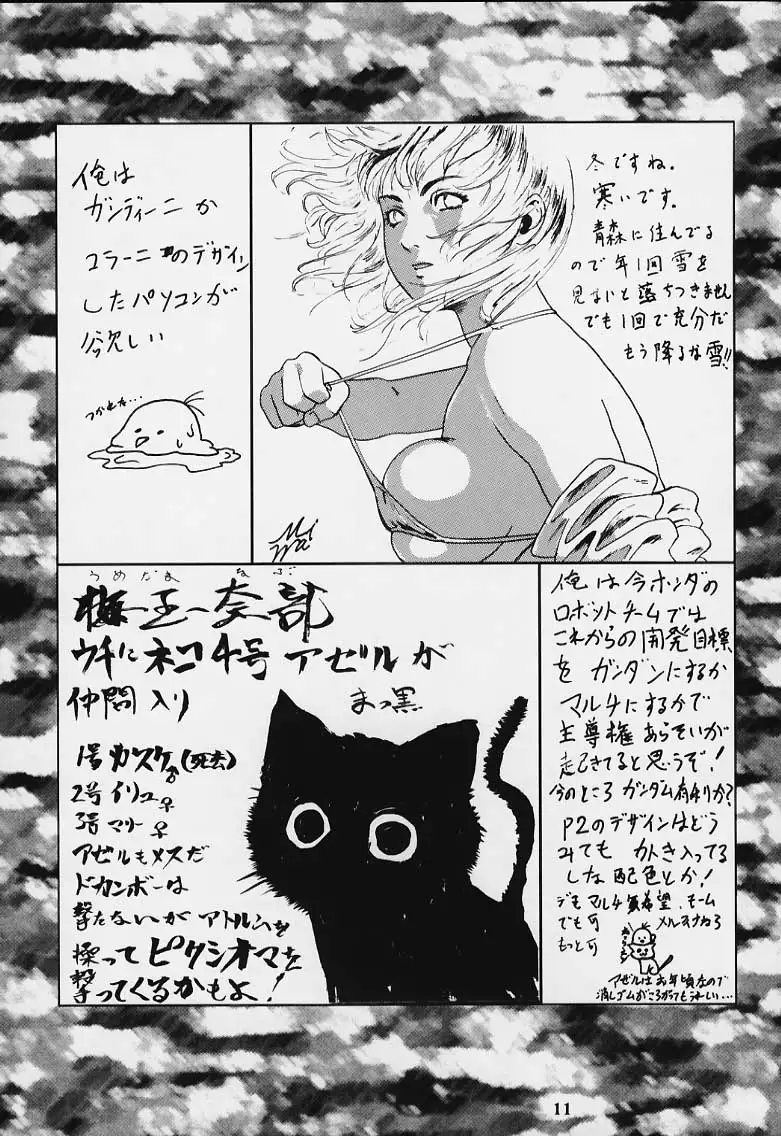 冬ですね。
寒いです。
青森に住んでる
ので年1回雪を
見ないと落ちつきません
でも1回で充分だ
もう降るな雪!!
俺は
ガンディーニか
コラーニのデザイン
したパソコンが
欲しい
つかれた…
うめだま なぶ
梅玉奈部
ウチにネコ4号アゼルが
仲間入り
まっ黒
1号カスケ♂(死去)
2号イリュ♀
3号マリー♀
アゼルもメスだ
ドカンボーは
撃たないがアトルムを
操ってピクシオマを
撃ってくるかもよ!
俺は今ホンダの
ロボットチームでは
これからの開発目標
をガンダンにするか
マルチにするかで
主導権あらそいが
起きてると思うぞ!
今のところガンダム有利か?
P2のデザインはどう
みても
入ってる
しな配色とか!
デモマルチ希望、
でも可
もっと可
アゼルはお年頃なので
消しゴムがころがってもうれしい…
11